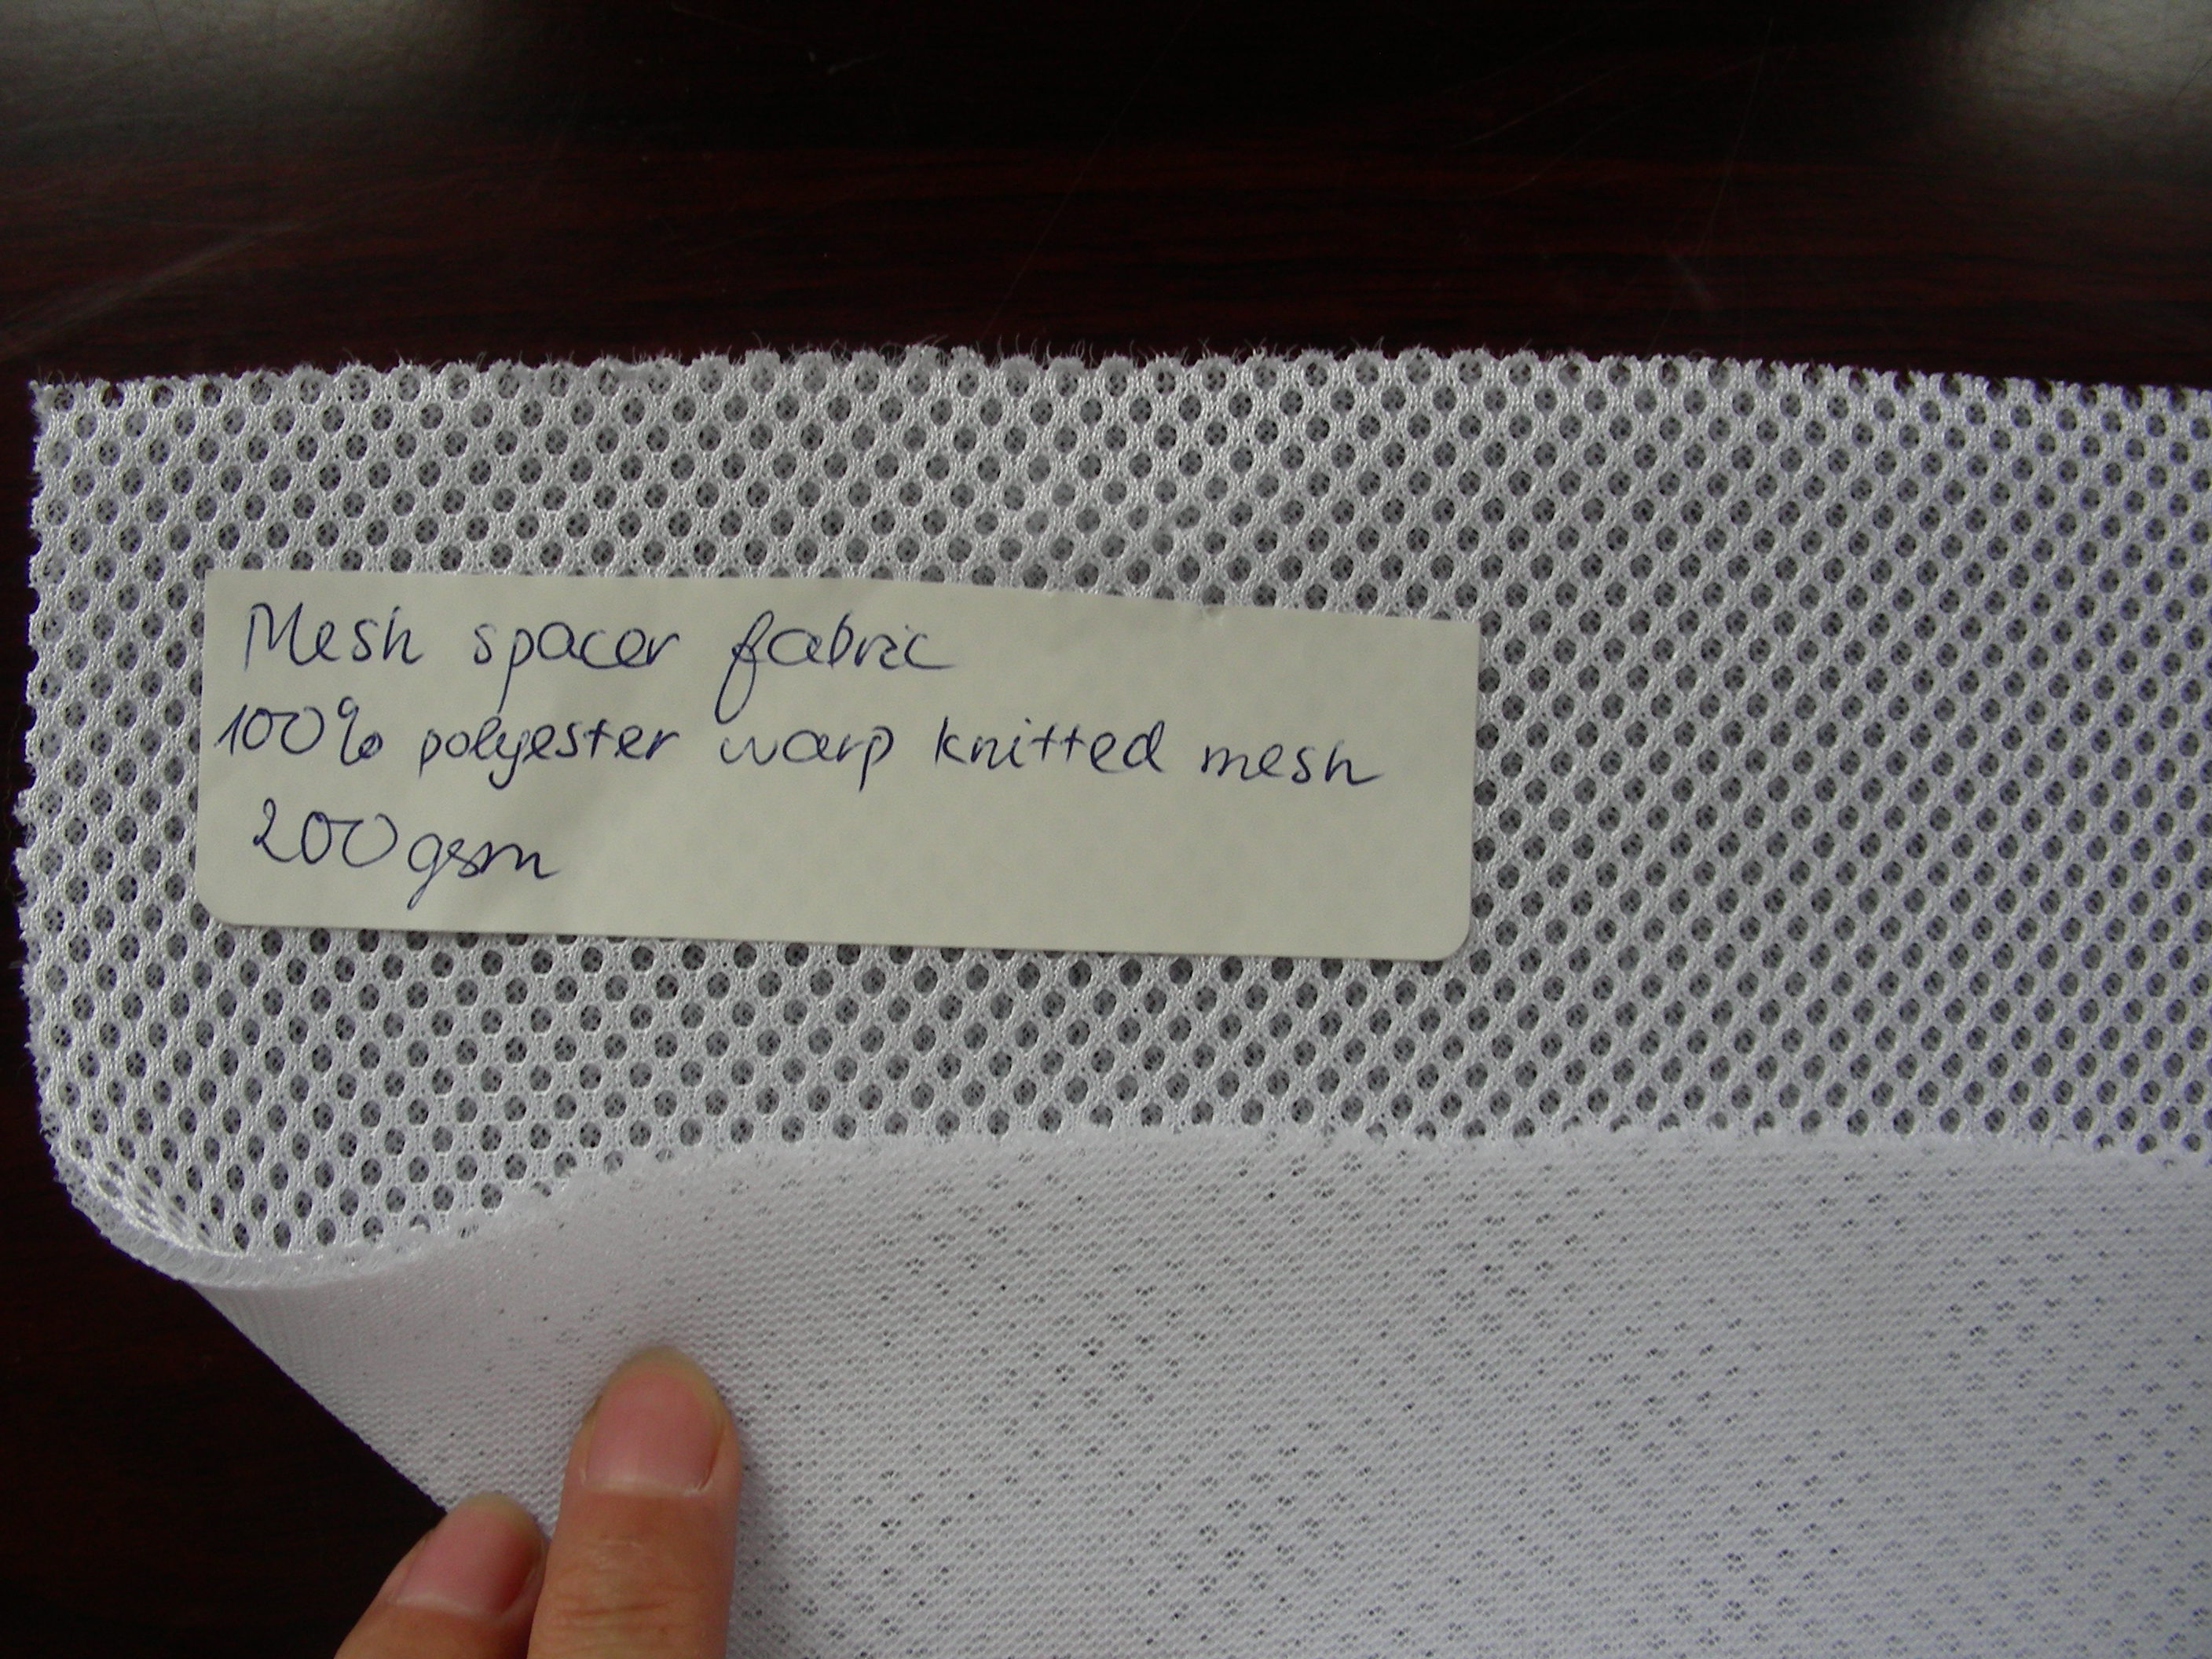 Mesh spacer fabric
100% polyester warp knitted mesh
200gsm